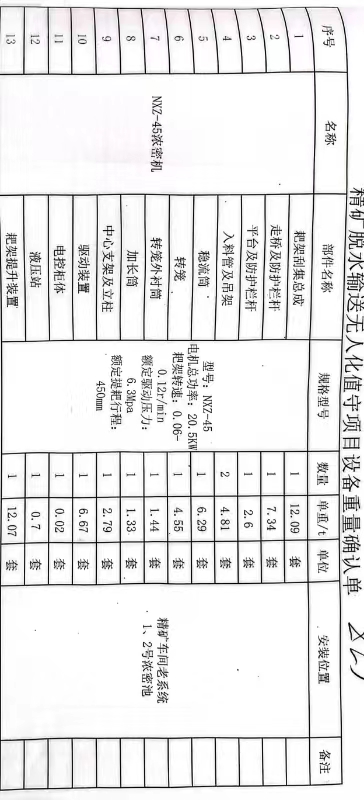 精矿脱水输送无人化值守项目设备重量确认单
序号 名称 部件名称 规格型号 数量 单重/t 单位 安装位置 备注
1 耙架刮集总成 1 12.09 套
2 走桥及防护栏杆 1 7.34 套
3 平台及防护栏杆 1 2.6 套
4 入料管及吊架 2 4.81 套
5 稳流筒 1 6.29 套
6 转笼 1 4.55 套
7 转笼外衬筒 1 1.44 套
8 加长筒 1 1.33 套
9 中心支架及立柱 1 2.79 套
10 驱动装置 1 6.67 套
11 电控柜体 1 0.02 套
12 液压站 1 0.7 套
13 耙架提升装置 1 12.07 套
NXZ-45浓密机
型号: NXZ-45
电机总功率: 20.5KW
耙架转速: 0.06-
0.12r/min
额定驱动压力:
6.3Mpa
额定提耙行程:
450mm
精矿车间老系统
1、2号浓密池